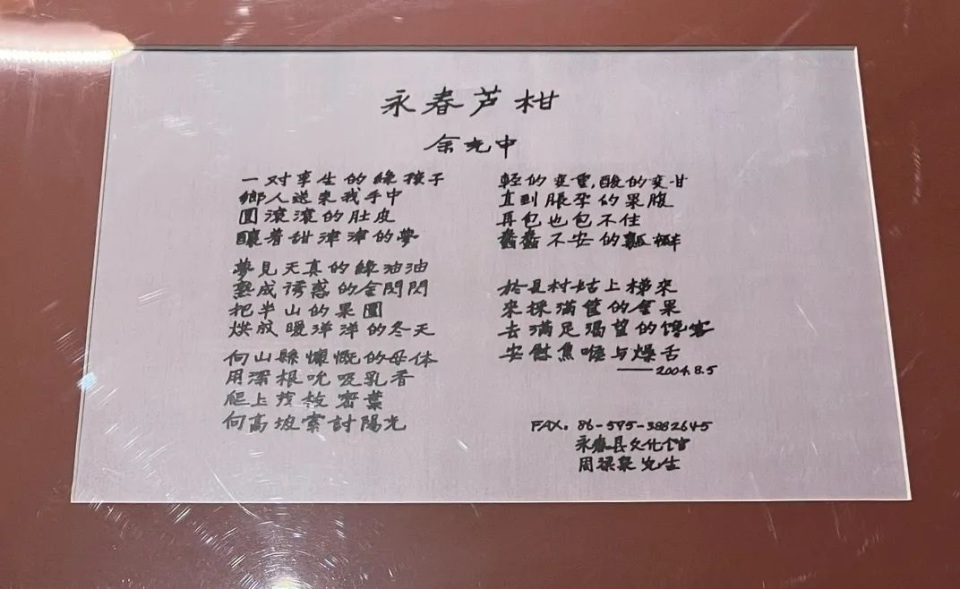 永春芦柑
余光中
一对孪生的綠孩子
鄉人送來我手中
圓滾滾的肚皮
釀着甜津津的夢
夢見天真的綠油油
熟成诱惑的金閃閃
把半山的果園
烘成暖洋洋的冬天
向山縣慷慨的母体
用深根吮吸乳香
爬上茂枝密葉
向高坡索討陽光
輕的变重,酸的变甘
直到脹孕的果腹
再包也包不住
蠢蠢不安的瓢瓣
於是村姑上梯來
來採滿筐的金果
去滿足渴望的馋客
安慰焦喉与燥舌
——2004.8.5
FAX: 86-595-3882645
永春县文化馆
周梁泉先生